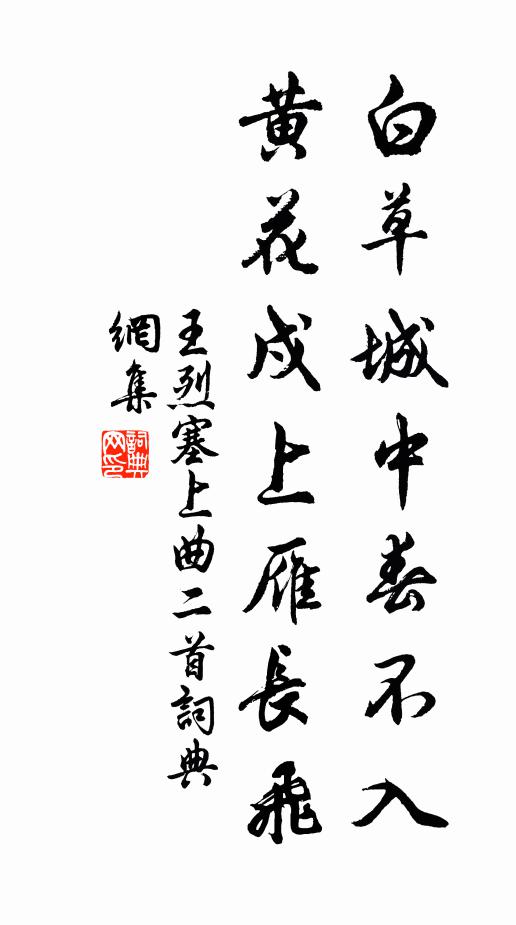 白草城中春不入
黃花戍上雁長飛
王烈塞上曲二首詞典
網集
詞典網印